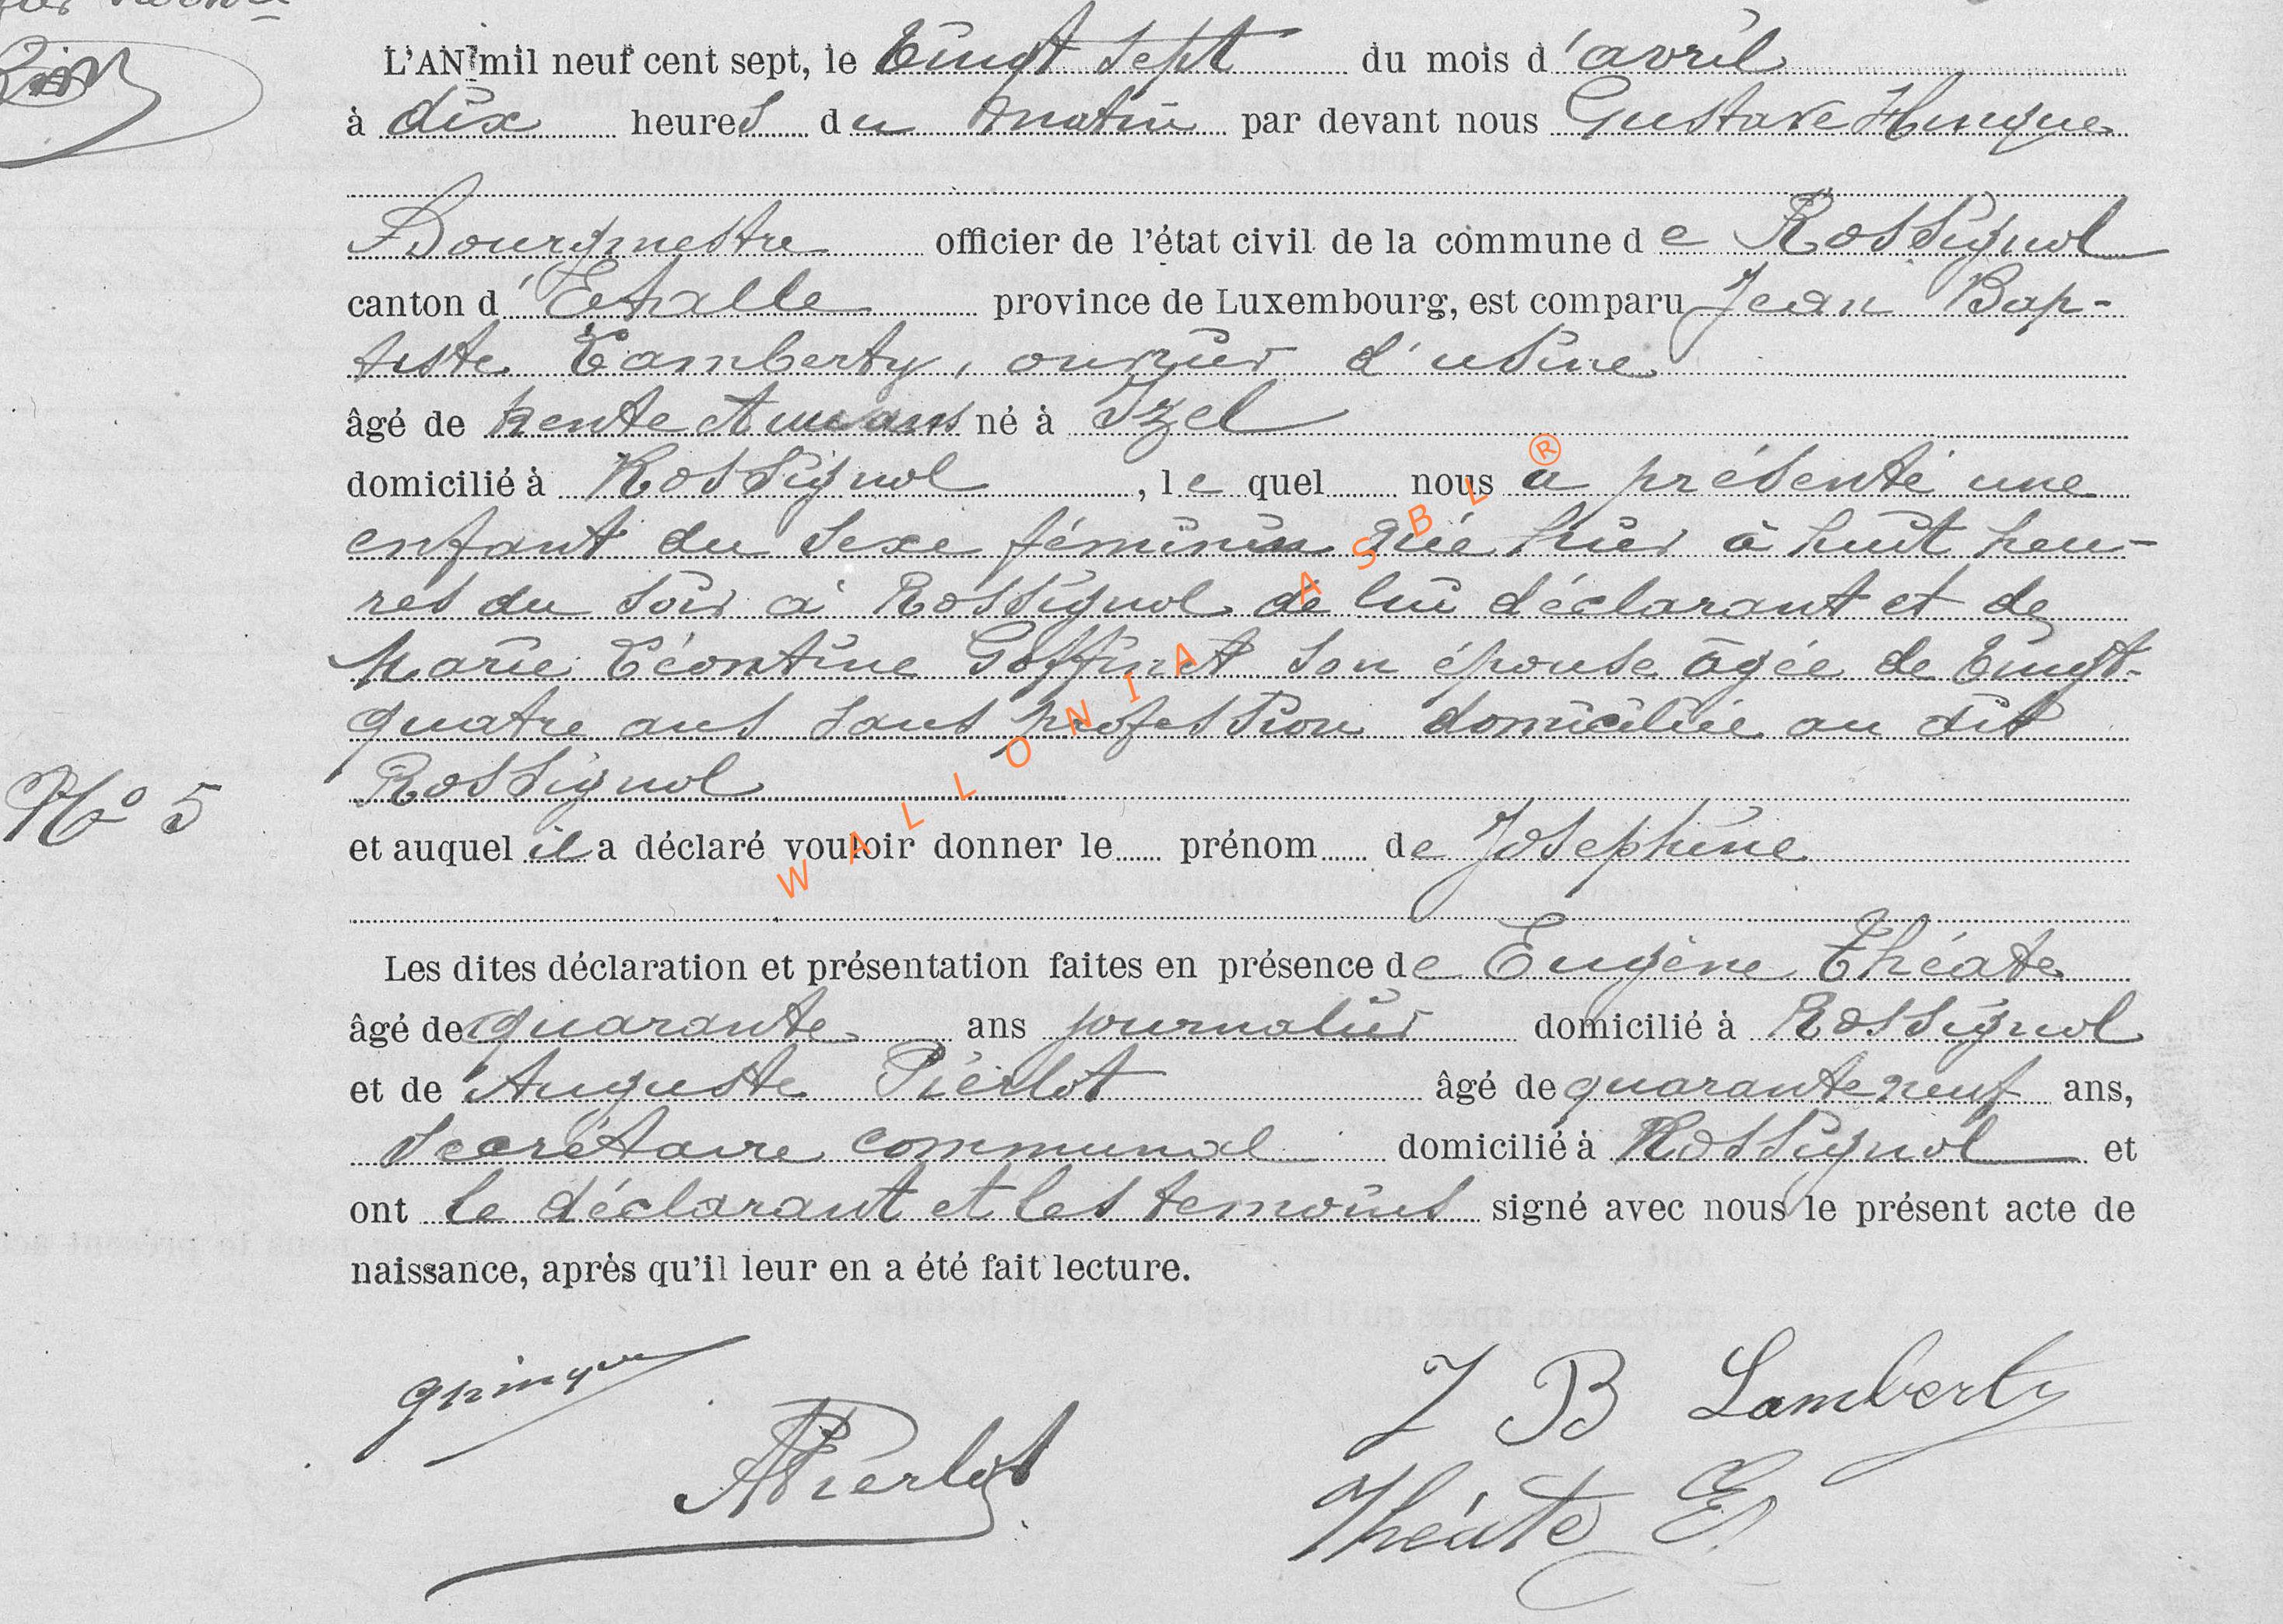 L'AN mil neuf cent sept, le Vingt sept du mois d'avril
à dix heures du matin par devant nous Gustave Hinque
Bourgmestre officier de l'état civil de la commune de Rossignol
canton d'Etalle province de Luxembourg, est comparu Jean Bap-
tiste Lamberty, ouvrier d'usine
âgé de trente et un ans né à Izel
domicilié à Rossignol, le quel nous a présenté une
enfant du sexe féminin née hier à huit heu-
res du soir à Rossignol de lui déclarant et de
Marie Léontine Goffinet son épouse âgée de vingt-
quatre ans sans profession domiciliée au dit
Rossignol
N° 5
et auquel il a déclaré vouloir donner le prénom de Joséphine
Les dites déclaration et présentation faites en présence de Eugène Théate
âgé de quarante ans journalier domicilié à Rossignol
et de Auguste Pierlot âgé de quarante neuf ans,
secrétaire communal domicilié à Rossignol et
ont le déclarant et les temoins signé avec nous le présent acte de
naissance, après qu'il leur en a été fait lecture.
J B Lamberty
APierlot
Théate E
WALLONIA ASBL ®